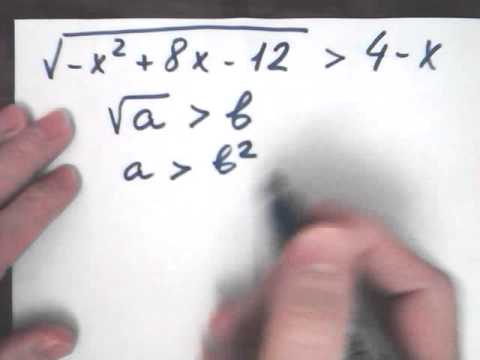 √(-x² + 8x - 12) > 4 - x
√a > b
a > b²